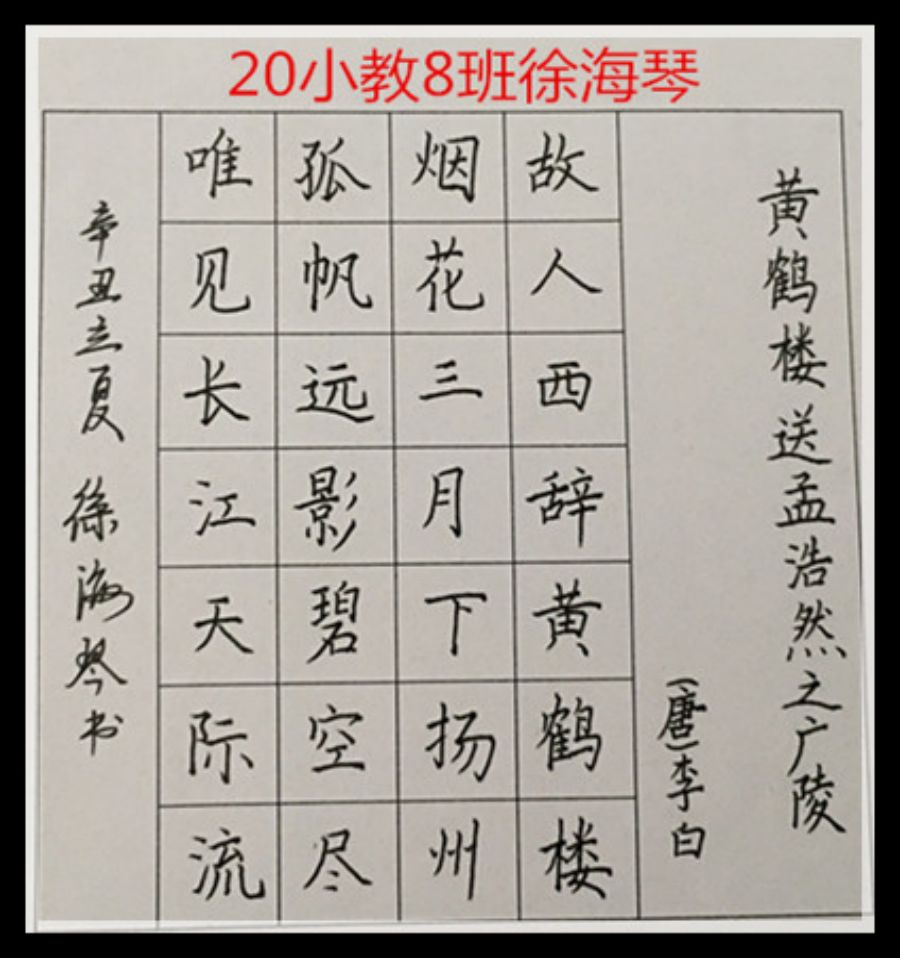 20小教8班徐海琴
黄鹤楼送孟浩然之广陵
(唐)李白
故人西辞黄鹤楼
烟花三月下扬州
孤帆远影碧空尽
唯见长江天际流
辛丑立夏 徐海琴书